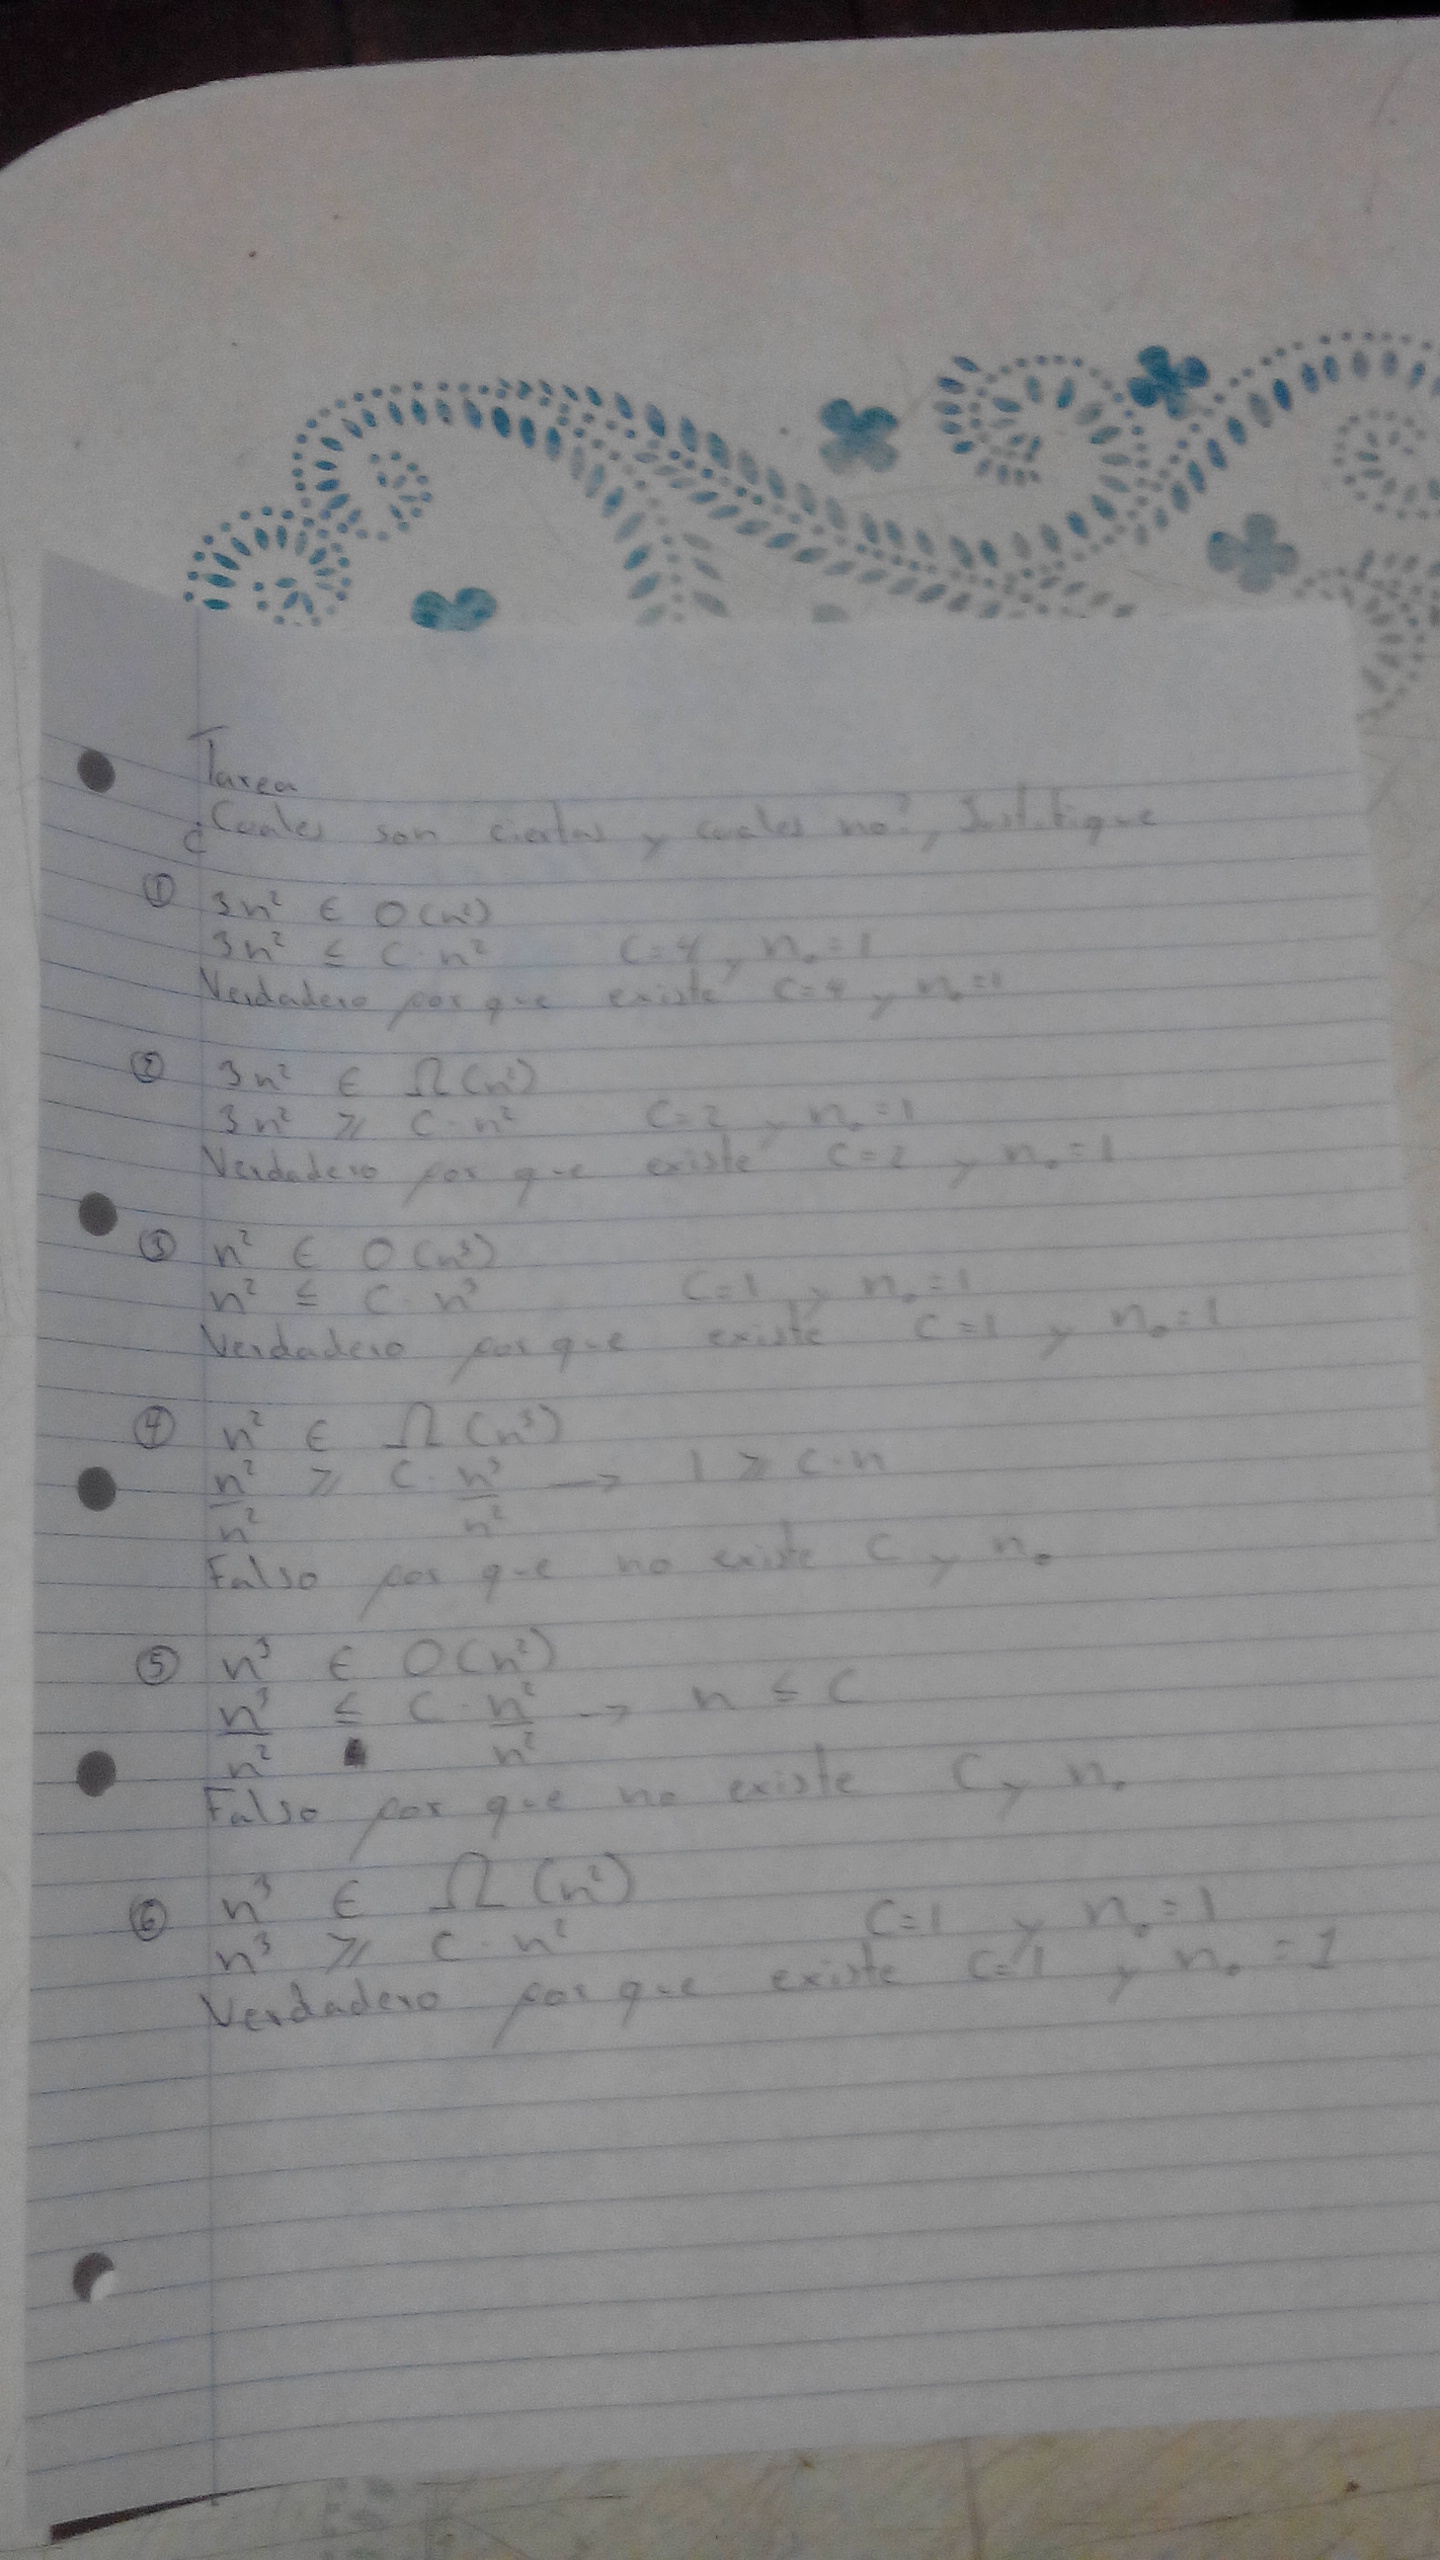 Tarea
¿Cuales son ciertas y cuales no?, Justifique
① 3n² ∈ O(n²)
3n² ≤ C·n² C=4 y n₀=1
Verdadero por que existe C=4 y n₀=1
② 3n² ∈ Ω(n²)
3n² ≥ C·n² C=2 y n₀=1
Verdadero por que existe C=2 y n₀=1
③ n² ∈ O(n³)
n² ≤ C·n³ C=1 y n₀=1
Verdadero por que existe C=1 y n₀=1
④ n² ∈ Ω(n³)
n²/n² ≥ C·n³/n² → 1 ≥ C·n
Falso por que no existe C y n₀
⑤ n³ ∈ O(n²)
n³/n² ≤ C·n²/n² → n ≤ C
Falso por que no existe C y n₀
⑥ n³ ∈ Ω(n²)
n³ ≥ C·n² C=1 y n₀=1
Verdadero por que existe C=1 y n₀=1